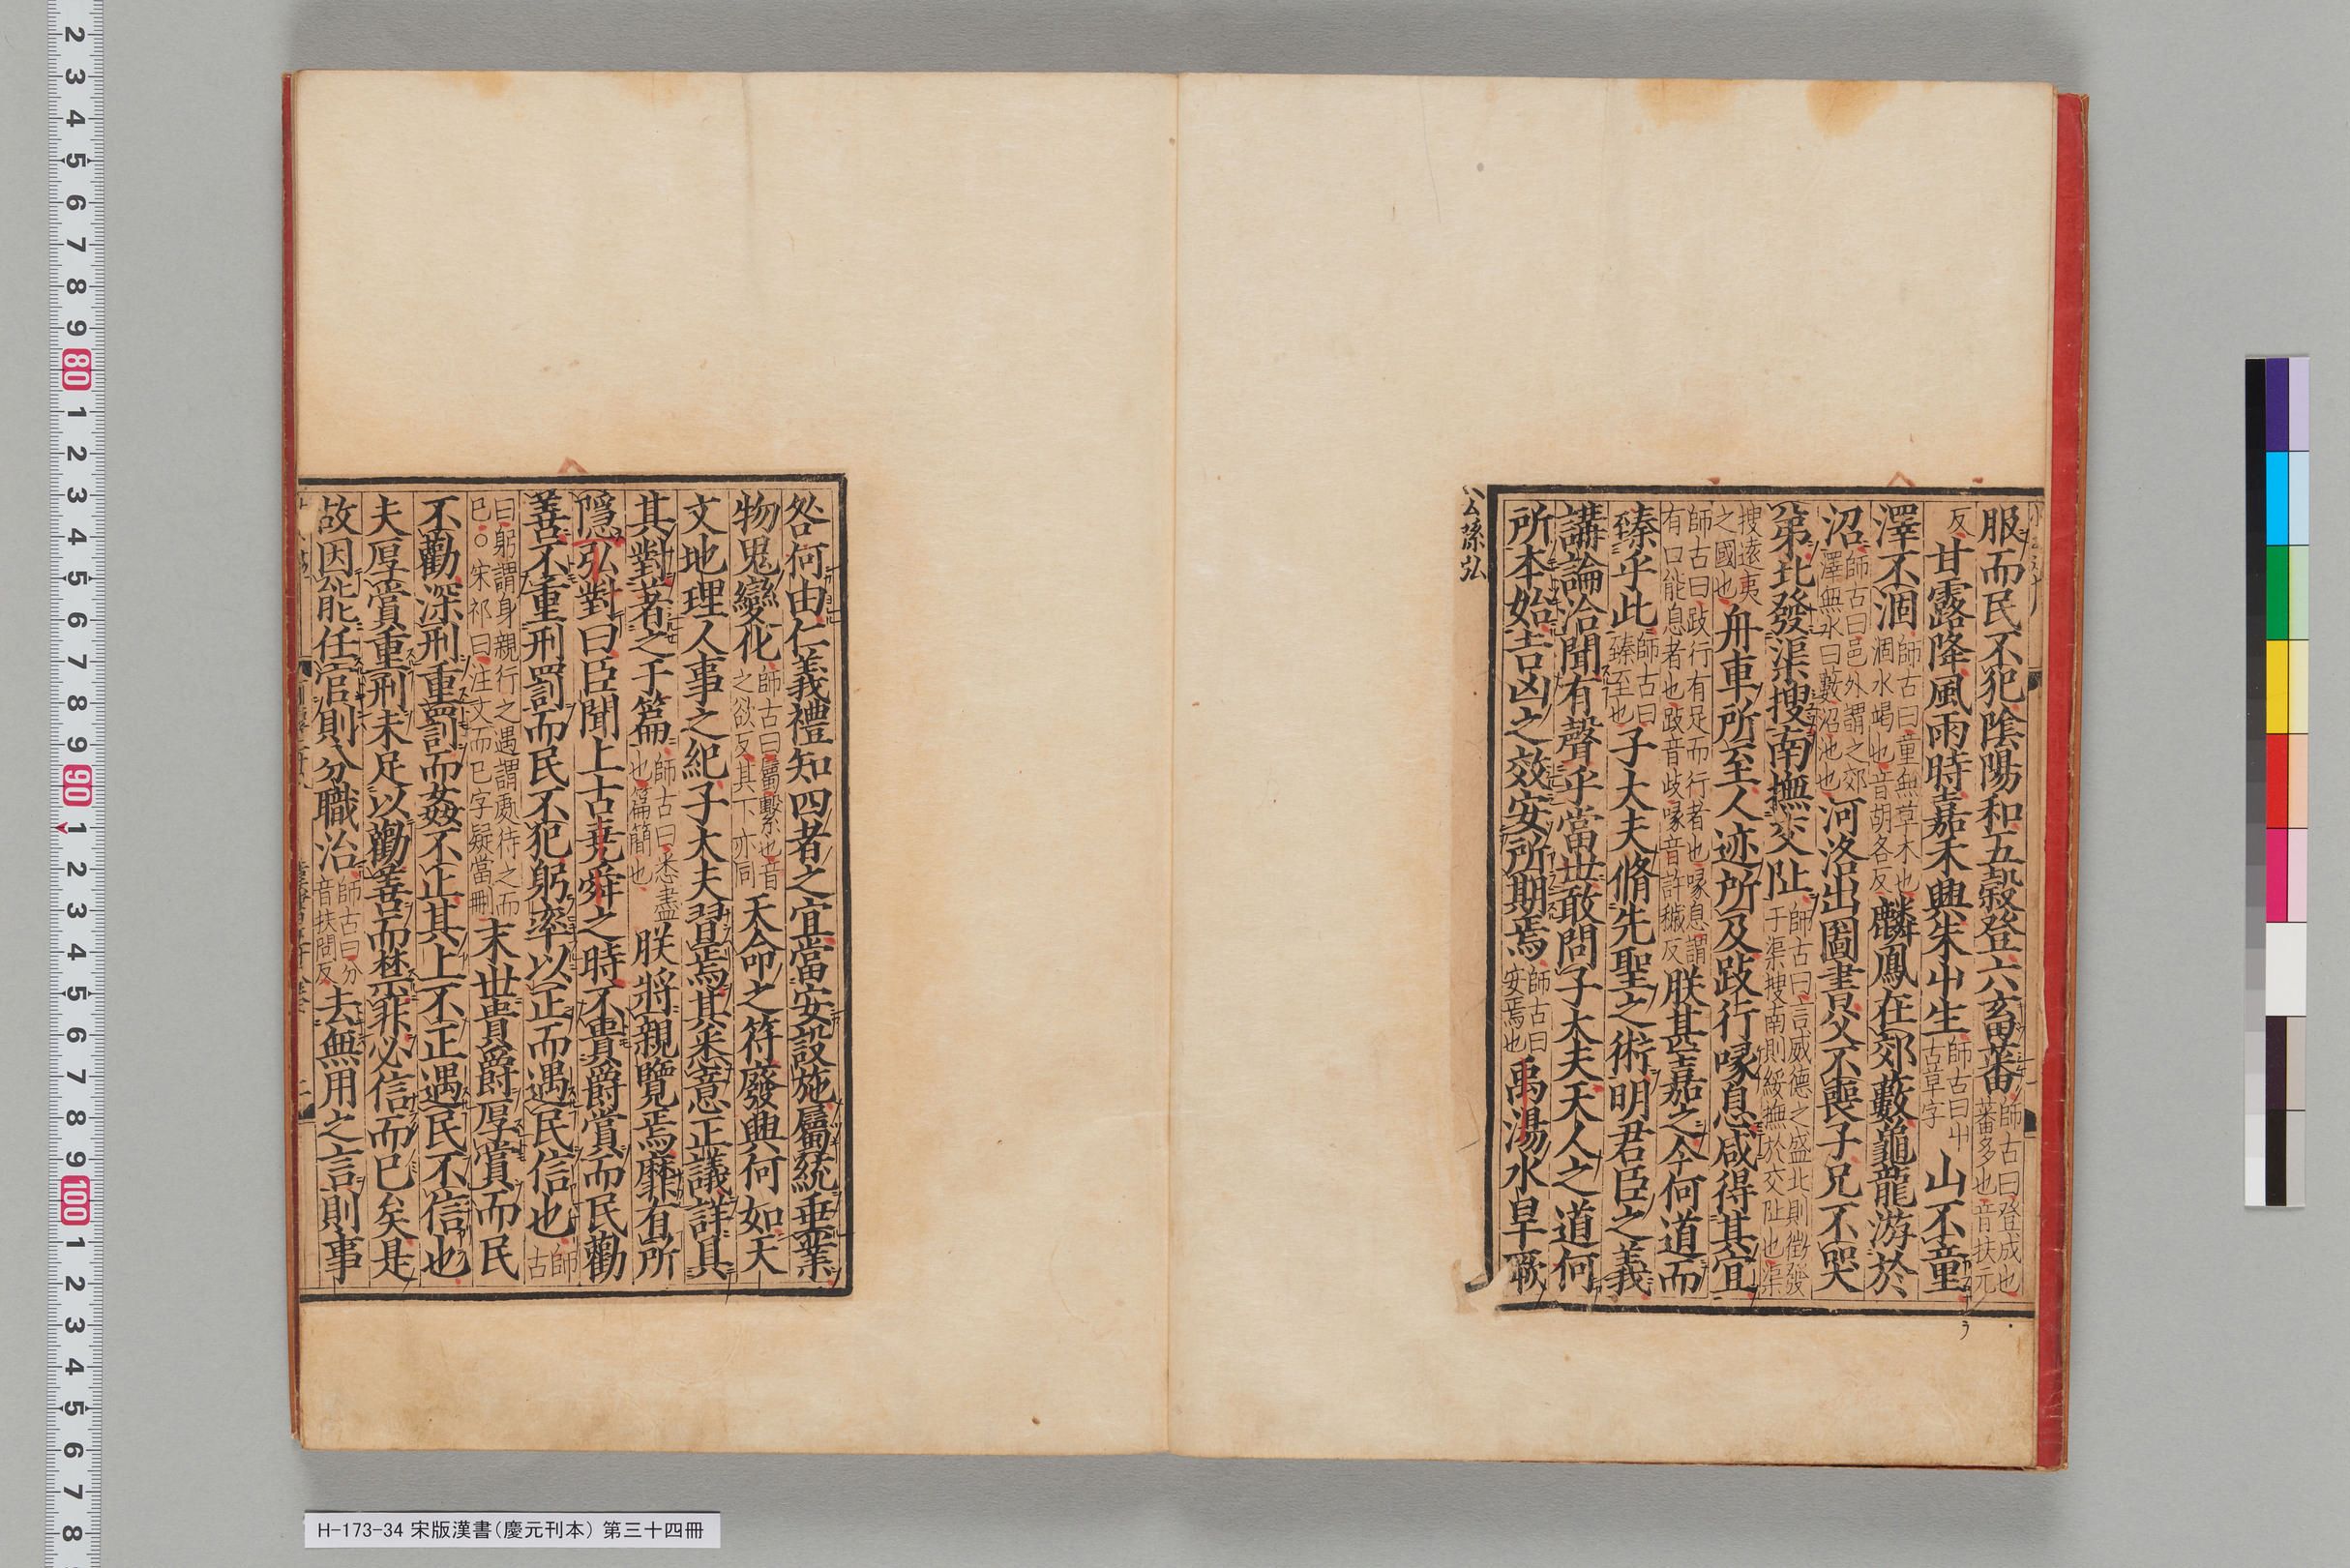 服而民不犯陰陽和五穀登六畜蕃師古曰登成也蕃多也音扶元
反甘露降風雨時嘉禾興朱屮生師古曰屮古草字山不童
澤不涸師古曰童無草木也涸水竭也音胡各反麟鳳在郊藪龜龍游於
沼師古曰邑外謂之郊澤無水曰藪沼池也河洛出圖書父不喪子兄不哭
弟北發渠搜南撫交阯師古曰言威德之盛北則徵發于渠搜南則綏撫於交阯也渠
搜遠夷之國也舟車所至人迹所及跂行喙息咸得其宜
師古曰跂行有足而行者也喙息謂有口能息者也跂音岐喙音許穢反朕甚嘉之今何道而
臻乎此師古曰臻至也子大夫脩先聖之術明君臣之義
講論洽聞有聲乎當世敢問子大夫天人之道何
所本始吉凶之效安所期焉師古曰安焉也禹湯水旱厥
公孫弘
咎何由仁義禮知四者之宜當安設施屬統垂業
物鬼變化師古曰屬繫也音之欲反其下亦同天命之符廢興何如天
文地理人事之紀子大夫習焉其悉意正議詳具
其對著之于篇師古曰悉盡也篇簡也朕將親覽焉靡有所
隱弘對曰臣聞上古堯舜之時不貴爵賞而民勸
善不重刑罰而民不犯躬率以正而遇民信也師古
曰躬謂身親行之遇謂處待之而已○宋祁曰注文而已字疑當刪末世貴爵厚賞而民
不勸深刑重罰而姦不止其上不正遇民不信也
夫厚賞重刑未足以勸善而禁非必信而已矣是
故因能任官則分職治師古曰分音扶問反去無用之言則事
H-173-34 宋版漢書(慶元刊本) 第三十四冊